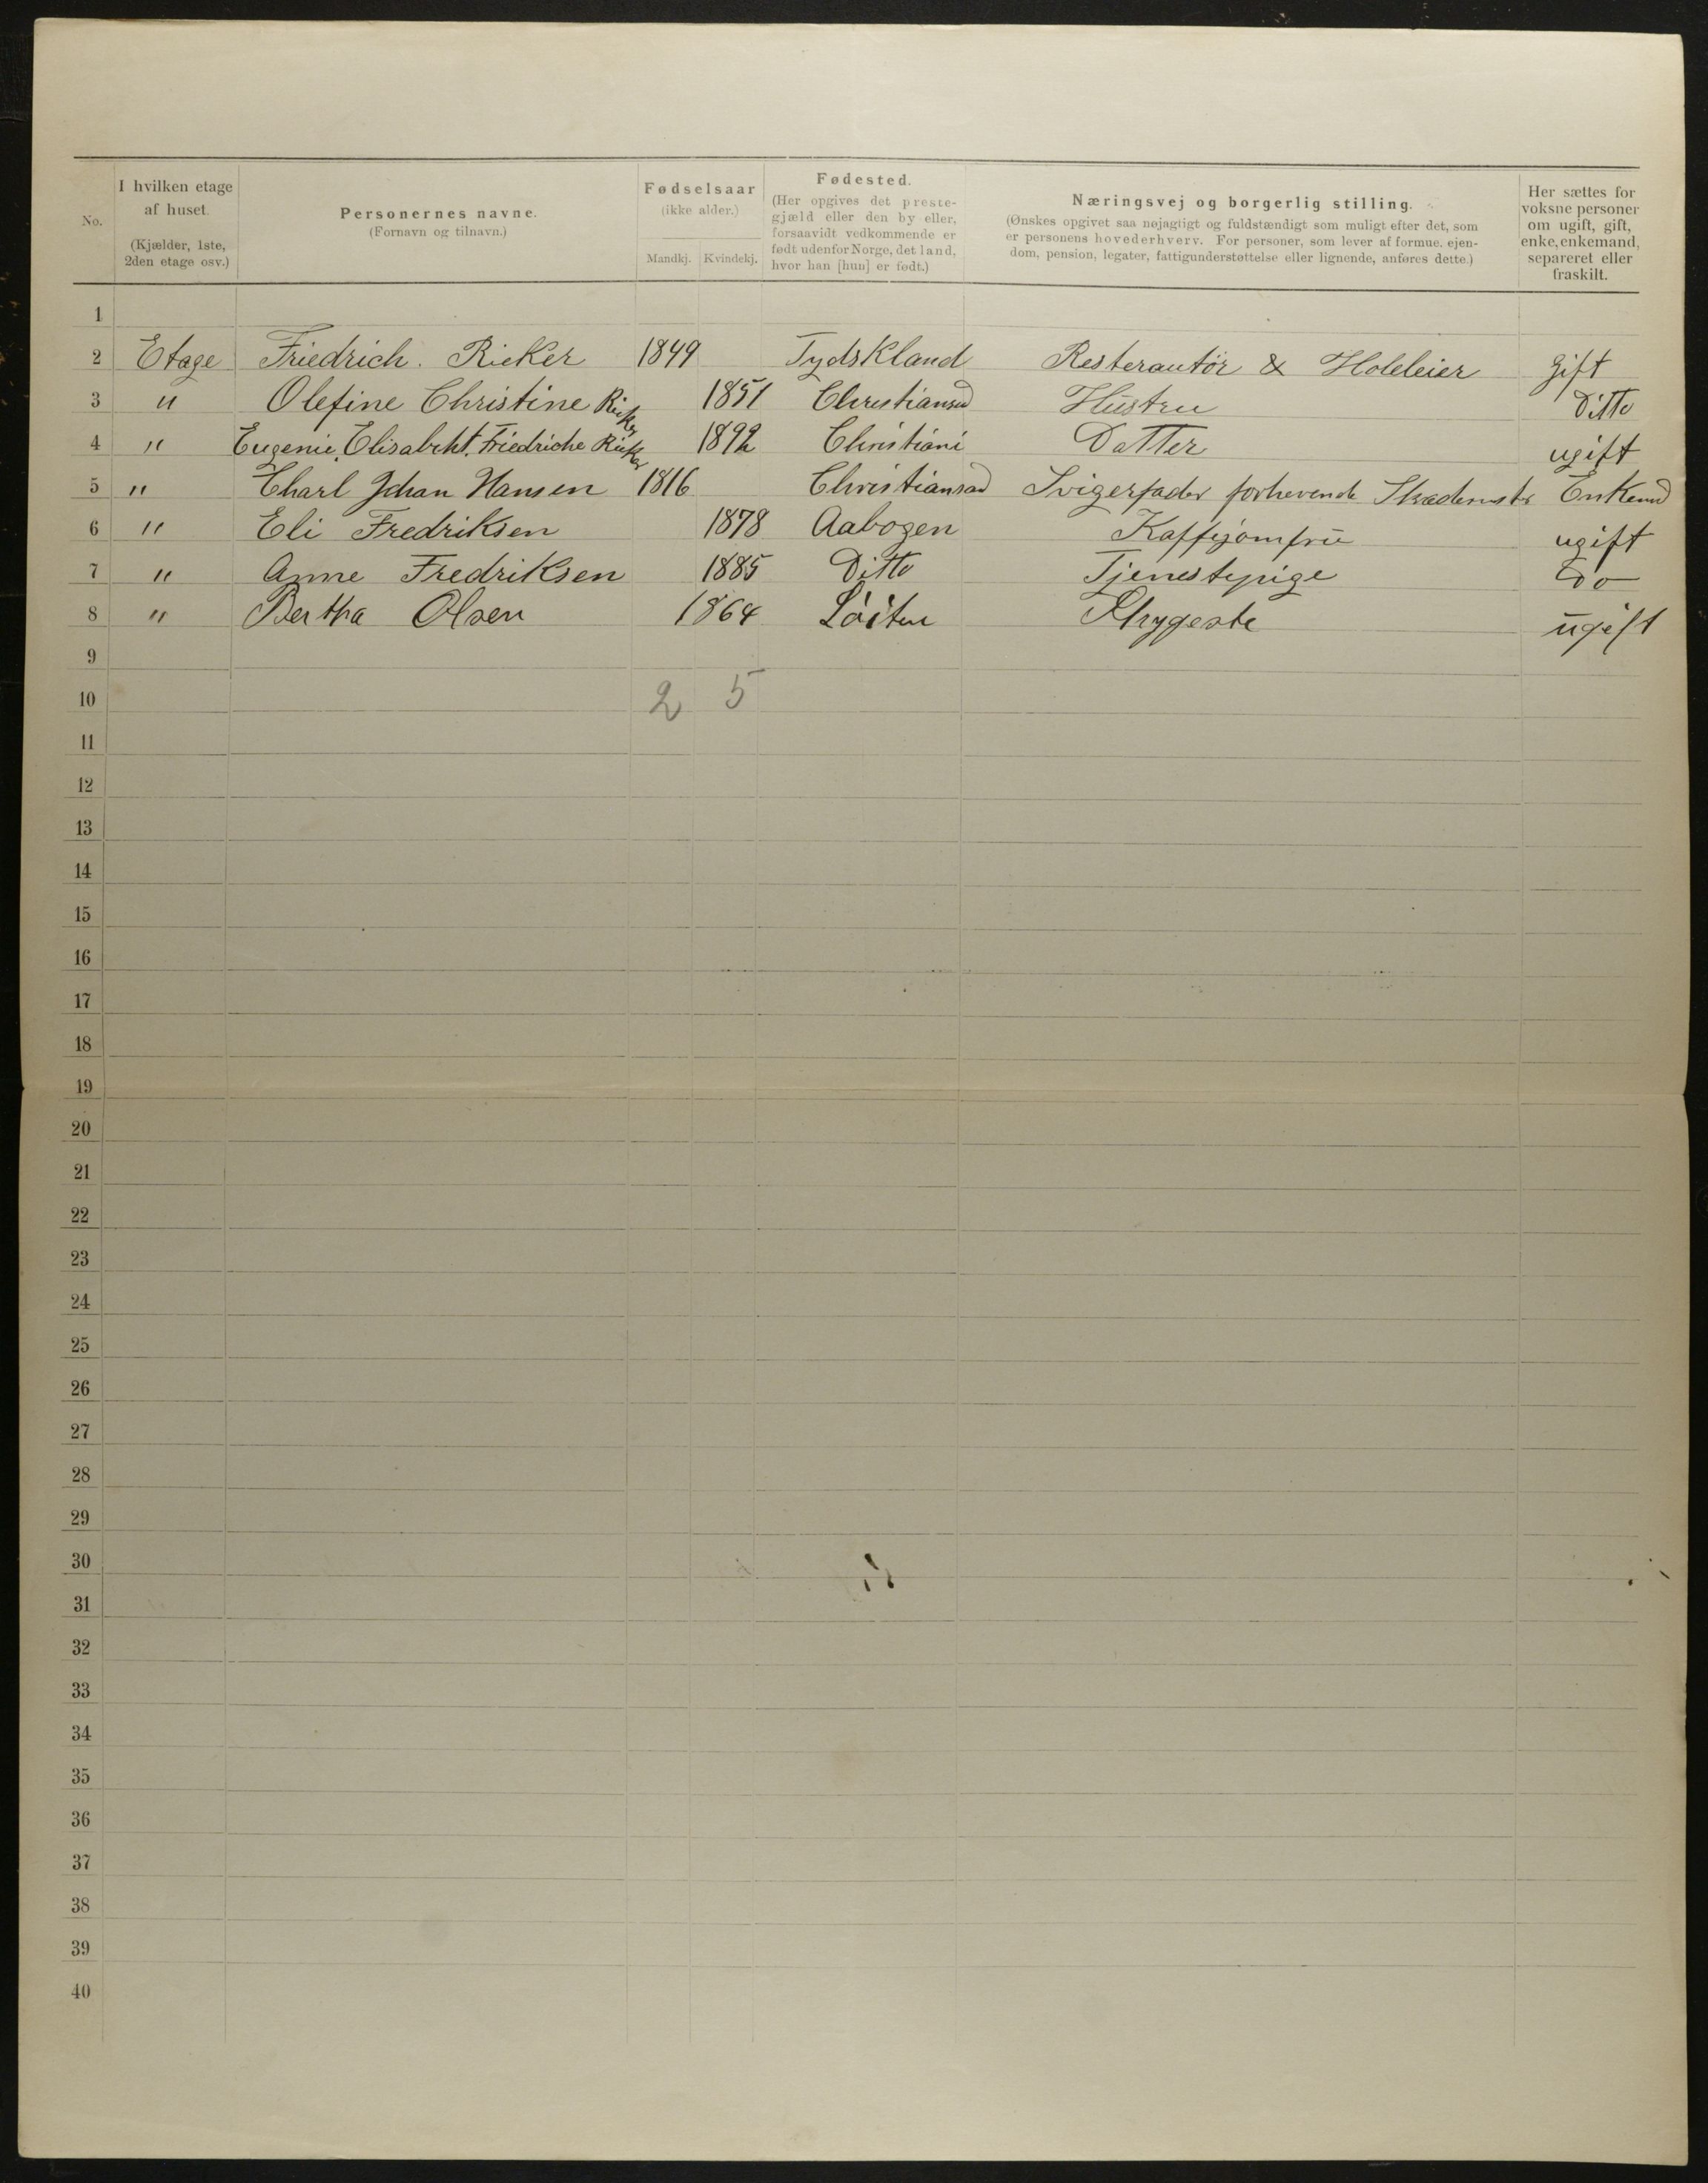 No.
I hvilken etage
af huset.
(Kjælder, 1ste,
2den etage osv.)
Personernes navne.
(Fornavn og tilnavn.)
Fødselsaar
(ikke alder.)
Mandkj. Kvindekj.
Fødested.
(Her opgives det preste-
gjæld eller den by eller,
forsaavidt vedkommende er
født udenfor Norge, det land,
hvor han [hun] er født.)
Næringsvej og borgerlig stilling.
(Ønskes opgivet saa nøjagtigt og fuldstændigt som muligt efter det, som
er personens hovederhverv. For personer, som lever af formue. ejen-
dom, pension, legater, fattigunderstøttelse eller lignende, anføres dette.)
Her sættes for
voksne personer
om ugift, gift,
enke, enkemand,
separeret eller
fraskilt.
1
2 Etage Friedrich. Rieker 1849 Tydskland Resterautör & Holeleier gift
3 " Olefine Christine Rieker 1851 Christiansd Hustru Ditto
4 " Eugenie, Elisabeht. Friedriche Rieker 1892 Christiani Datter ugift
5 " Charl Johan Hansen 1816 Christiansand Svigerfader forhevende Enkemd
6 " Eli Fredriksen 1878 Aabogen Kaffejomfru ugift
7 " Anne Fredriksen 1885 Ditto Tjenestepige Do
8 " Bertha Olsen 1864 Löiten Strygeste ugift
9
10 2 5
11
12
13
14
15
16
17
18
19
20
21
22
23
24
25
26
27
28
29
30
31
32
33
34
35
36
37
38
39
40